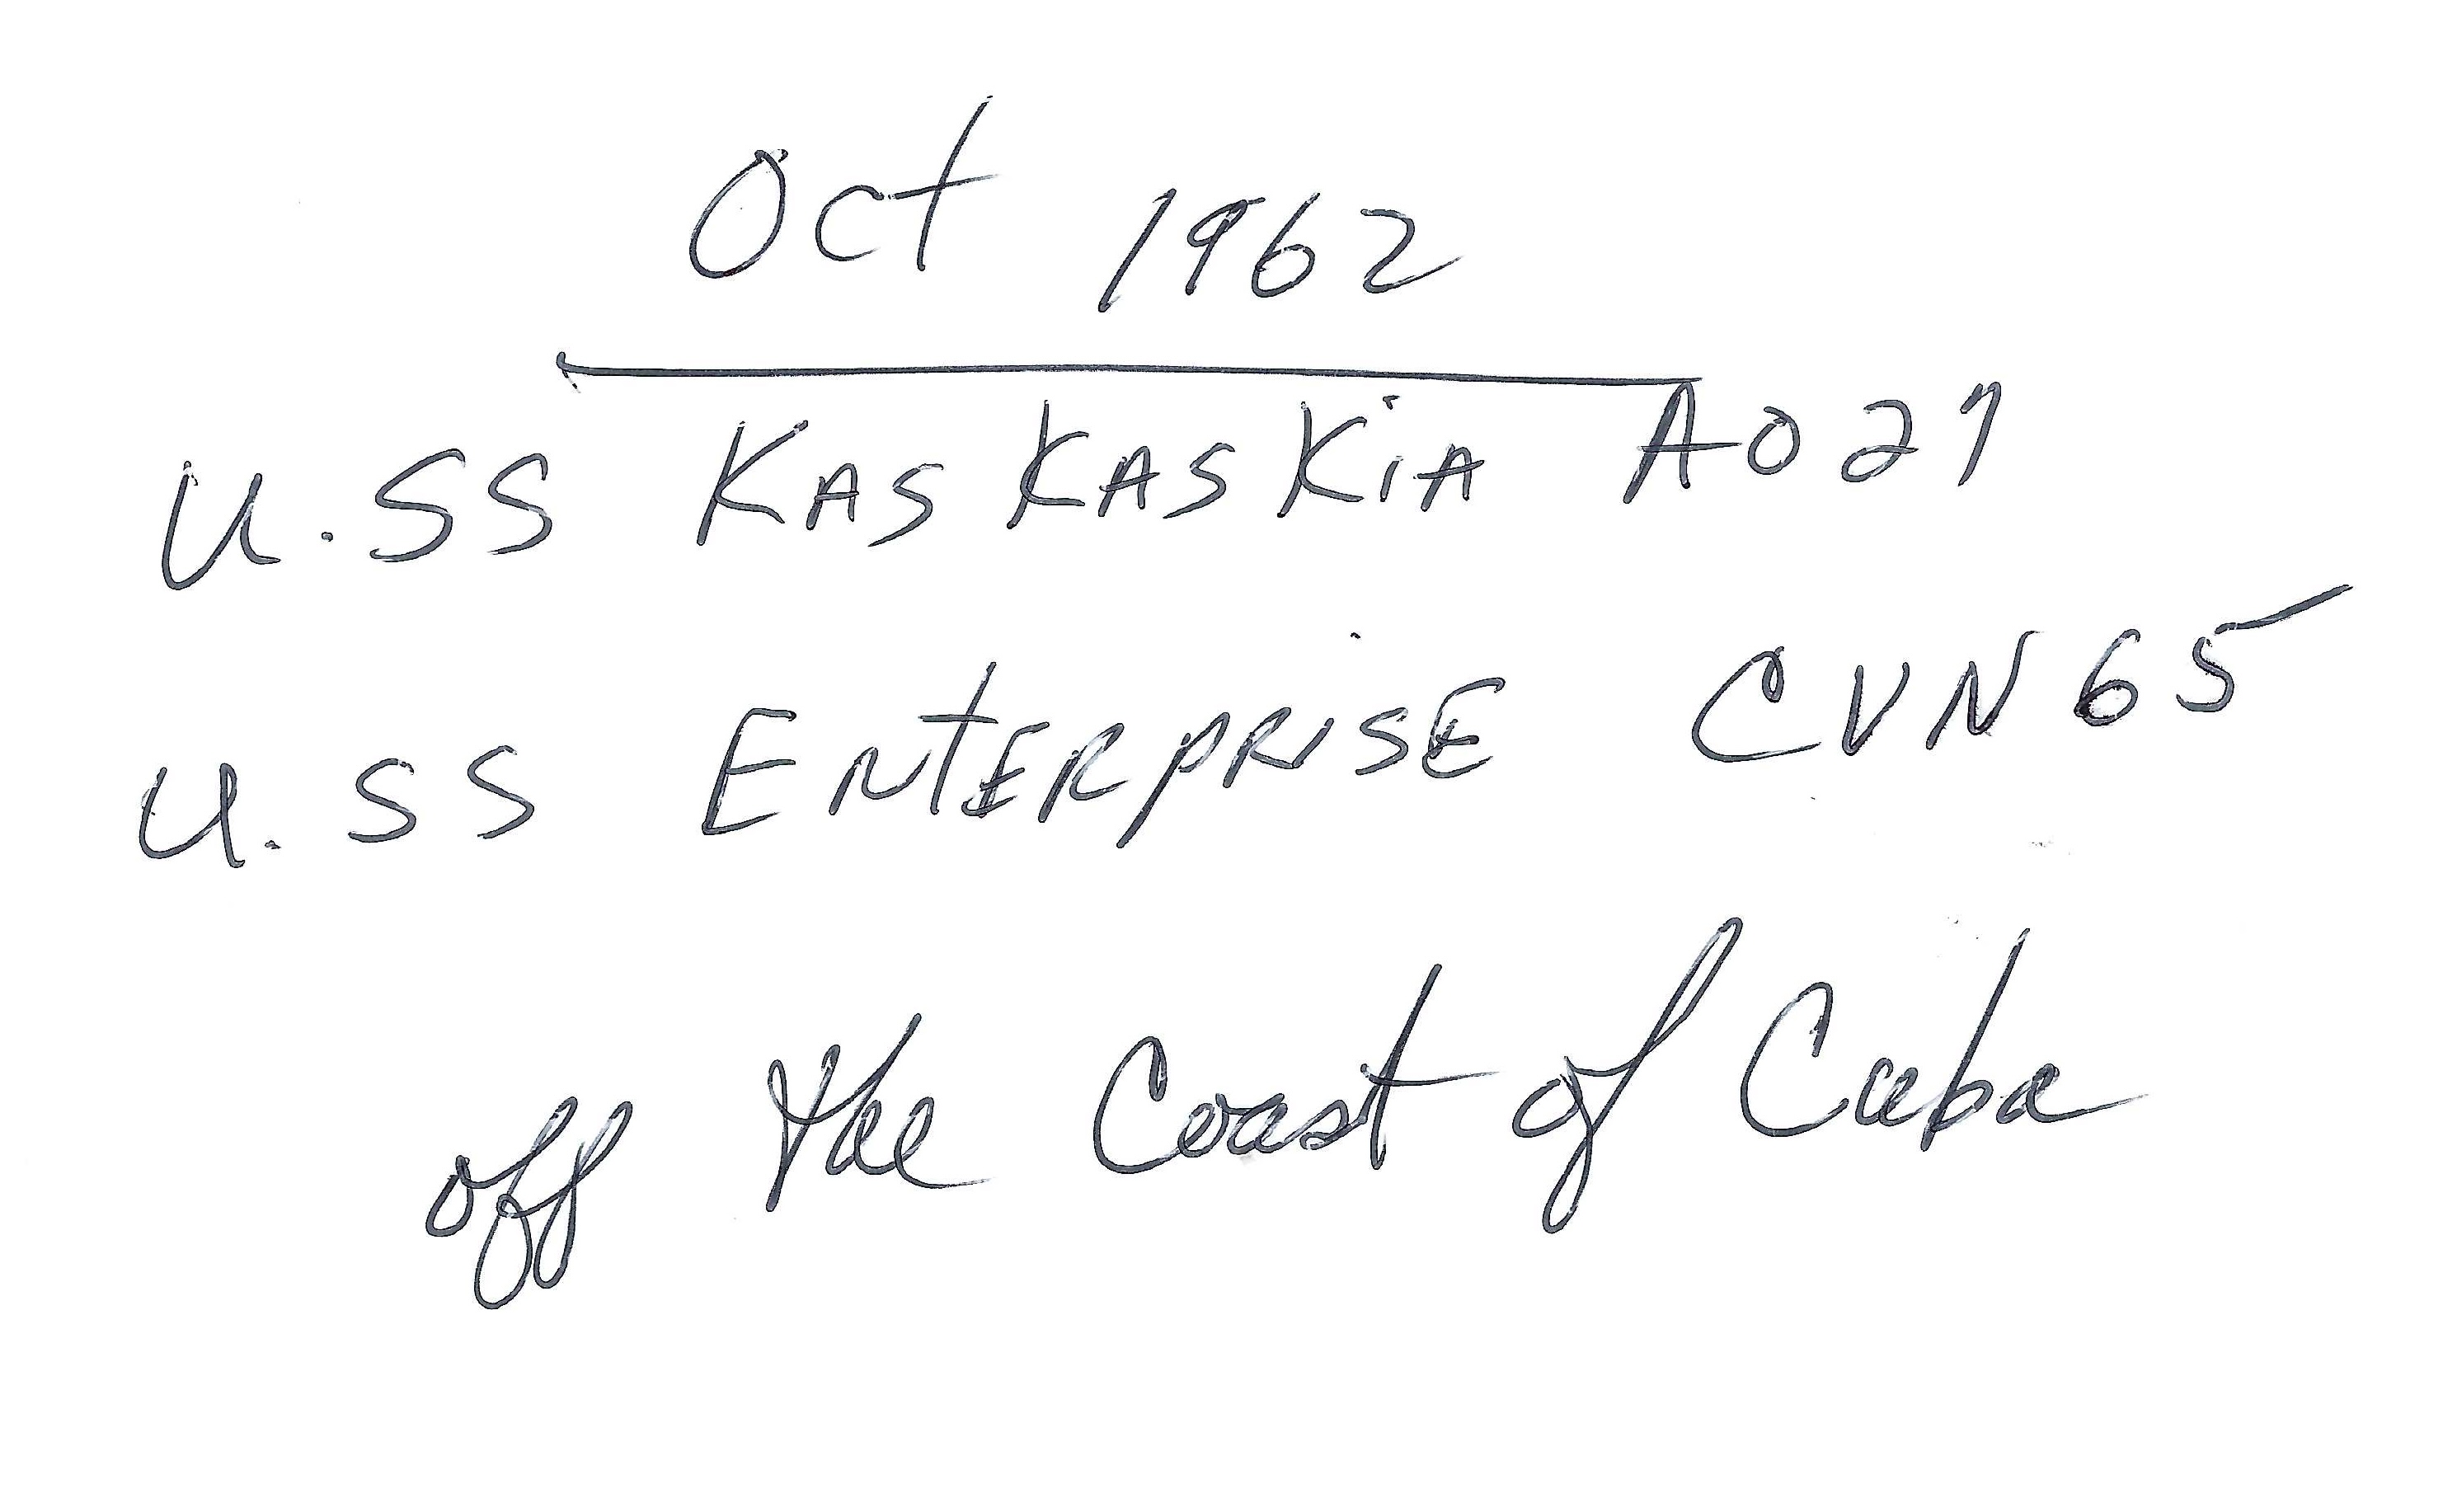 Oct 1962
U.SS KASKASKiA AO27
U.SS ENtERPRISE CVN65
off the Coast of Cuba